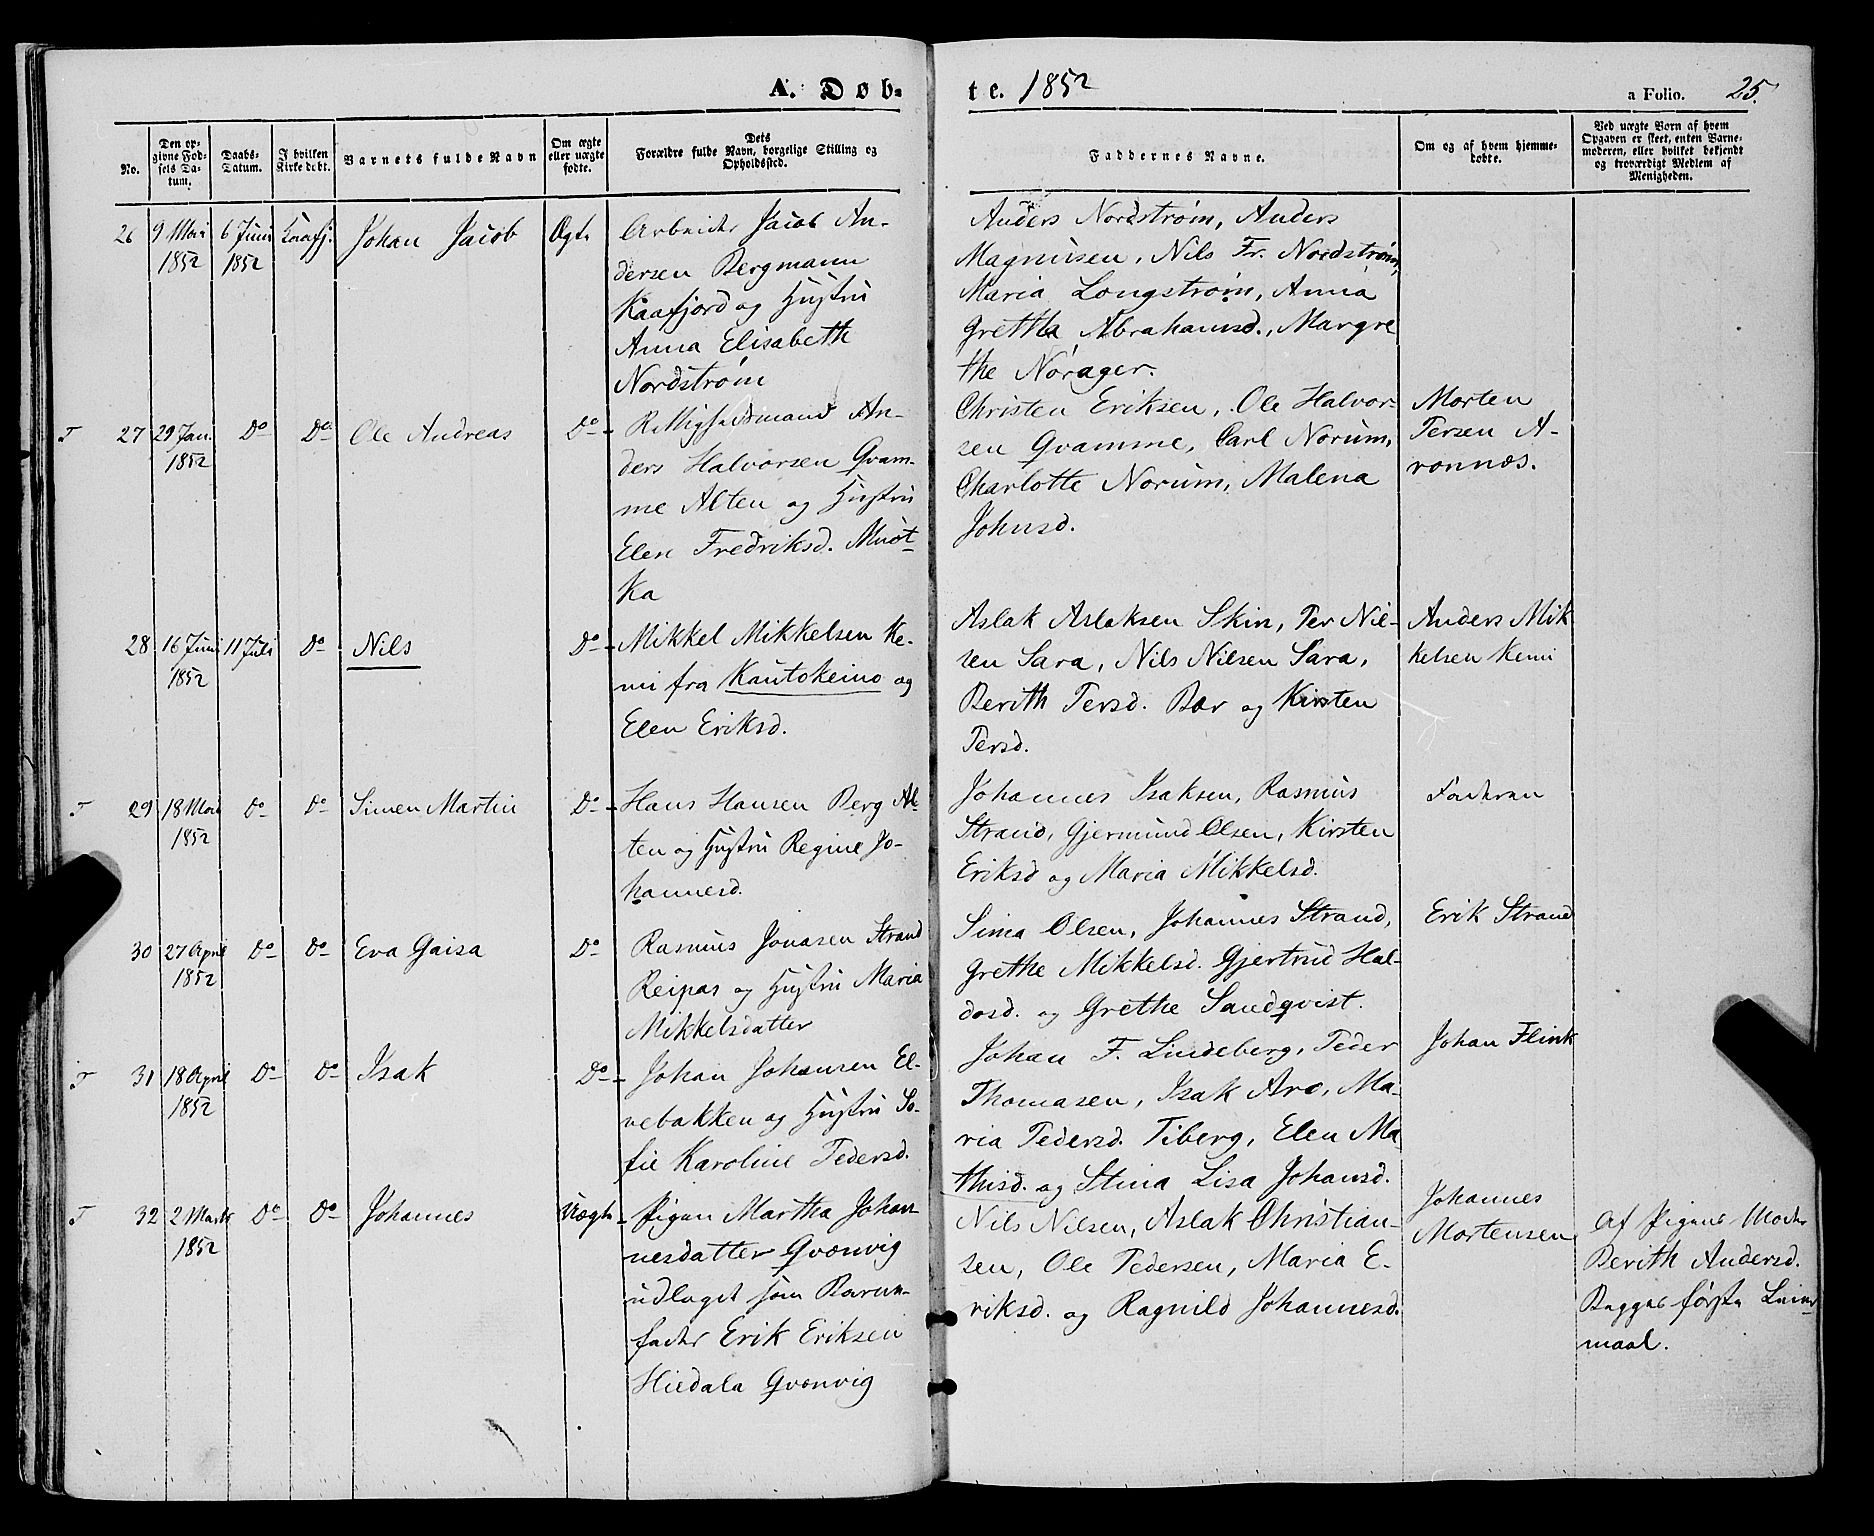 A. Døb-
te. 1852
a Folio. 25.
No.
Den op-
givne Fød-
sels Da-
tum.
Daabs-
Datum.
I hvilken
Kirke døbt.
Barnets fulde Navn
Om ægte
eller uægte
fødte.
Dets
Forældre fulde Navn, borgelige Stilling og
Opholdssted.
Faddernes Navne.
Om og af hvem hjemme-
døbte.
Ved uægte Børn af hvem
Opgaven er skeet, enten Barne-
moderen, eller hvilket bekjendt
og troværdigt Medlem af
Menigheden.
26 9 Mai 1852 6 Juni 1852 Kaafj. Johan Jacob Ægte
Arbeider Jacob An-
dersen Bergmann
Kaafjord og Hustru
Anna Elisabeth
Nordstrøm
Anders Nordstrøm, Anders
Magnusen, Nils Fr. Nordstrøm,
Maria Longstrøm, Anna
Gretha Abrahamsd., Margre
the Norager.
T 27 29 Jan. 1852 Do Do Ole Andreas Do-
Rettighedsmand An-
ders Halvorsen Qvam-
me Alten og Hustru
Elen Fredriksd. Muot-
ka
Christen Eriksen, Ole Halvor-
sen Qvamme, Carl Norum,
Charlotte Norum, Malena
Johnsd.
Morten
Persen A-
ronnæs.
28 16 Juni 1852 11 Juli Do Nils Do-
Mikkel Mikkelsen Ke-
mi fra Kautokeino og
Elen Eriksd.
Aslak Aslaksen Skin, Per Nil-
sen Sara, Nils Nilsen Sara,
Berith Persd. Bær og Kirsten
Persd.
Anders Mik
kelsen Kemi
T 29 18 Mai 1852 Do Do Simen Martin Do-
Hans Hansen Berg Al-
ten og Hustru Regine Jo-
hannesd.
Johannes Isaksen, Rasmus
Strand, Gjermund Olsen, Kirsten
Eriksd og Maria Mikkelsd.
Faderen
30 27 April 1852 Do Do Eva Gaisa Do
Rasmus Jonasen Strand
Reipas og Hustru Maria
Mikkelsdatter
Sima Olsen, Johannes Strand,
Grethe Mikkelsd. Gjertrud Hal-
dosd. og Grethe Sandqvist.
Erik Strand
T 31 18 April 1852 Do Do Isak Do-
Johan Johansen El-
vebakken og Hustru So-
fie Karoline Pedersd.
Johan F. Lindeberg, Peder
Thomasen, Isak Aro, Ma-
ria Pedersd. Tiberg, Elen Ma
thisd. og Stina Lisa Johansd.
Johan Flink
T 32 2 Marts 1852 Do Do Johannes Uægte
Pigen Martha Johan-
nesdatter Qvænvig
udlagt som Barne-
fader Erik Eriksen
Hiedala Qvænvig
Nils Nilsen, Aslak Christian-
sen, Ole Pedersen, Maria E-
riksd. og Ragnild Johannesd.
Johannes
Mortensen
Af Pigens Moder
Berith Andersd.
Begges første Leier-
maal.